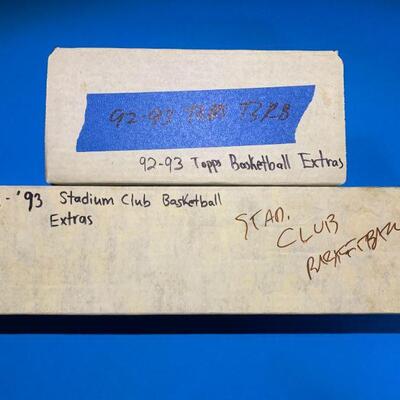 92-93
92-93 Topps Basketball Extras
- '93 Stadium Club Basketball
Extras
STAD.
CLUB
BASKETBALL